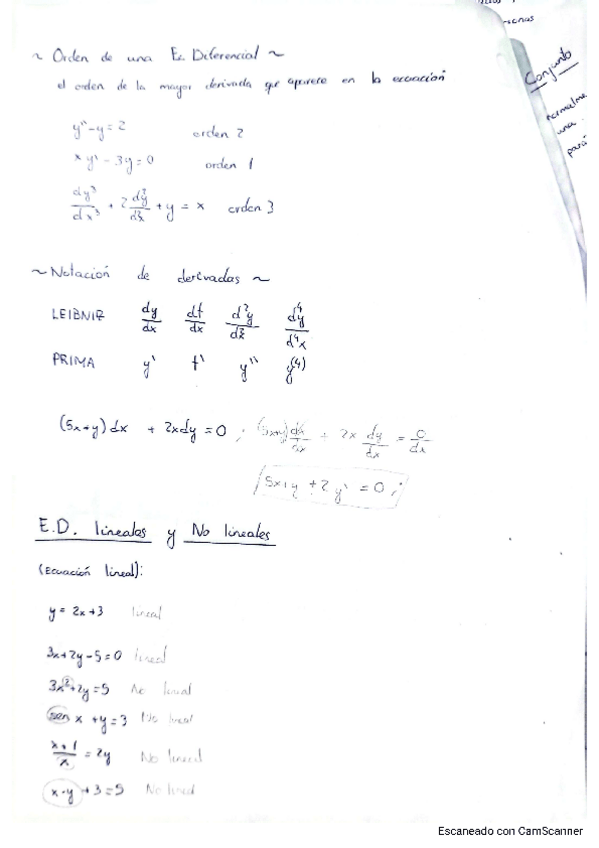 ~ Orden de una Ec. Diferencial ~
el orden de la mayor derivada que aparece en la ecuación
y'' - y = 2 orden 2
x y' - 3y = 0 orden 1
dy³/dx³ + 2 d²y/dx² + y = x orden 3
~ Notación de derivadas ~
LEIBNIZ dy/dx dt/dx d²y/dx² d⁴y/d⁴x
PRIMA y' t' y'' y⁽⁴⁾
(5x+y)dx + 2xdy = 0 ; (5x+y)dx/dx + 2x dy/dx = 0/dx
5x+y + 2y' = 0 ;
E.D. lineales y No lineales
(Ecuación lineal):
y = 2x+3 lineal
3x+2y-5=0 lineal
3x²+2y=5 No lineal
sen x + y = 3 No lineal
x+1/x = 2y No lineal
x·y + 3 = 5 No lineal
Conjunto
una
Escaneado con CamScanner